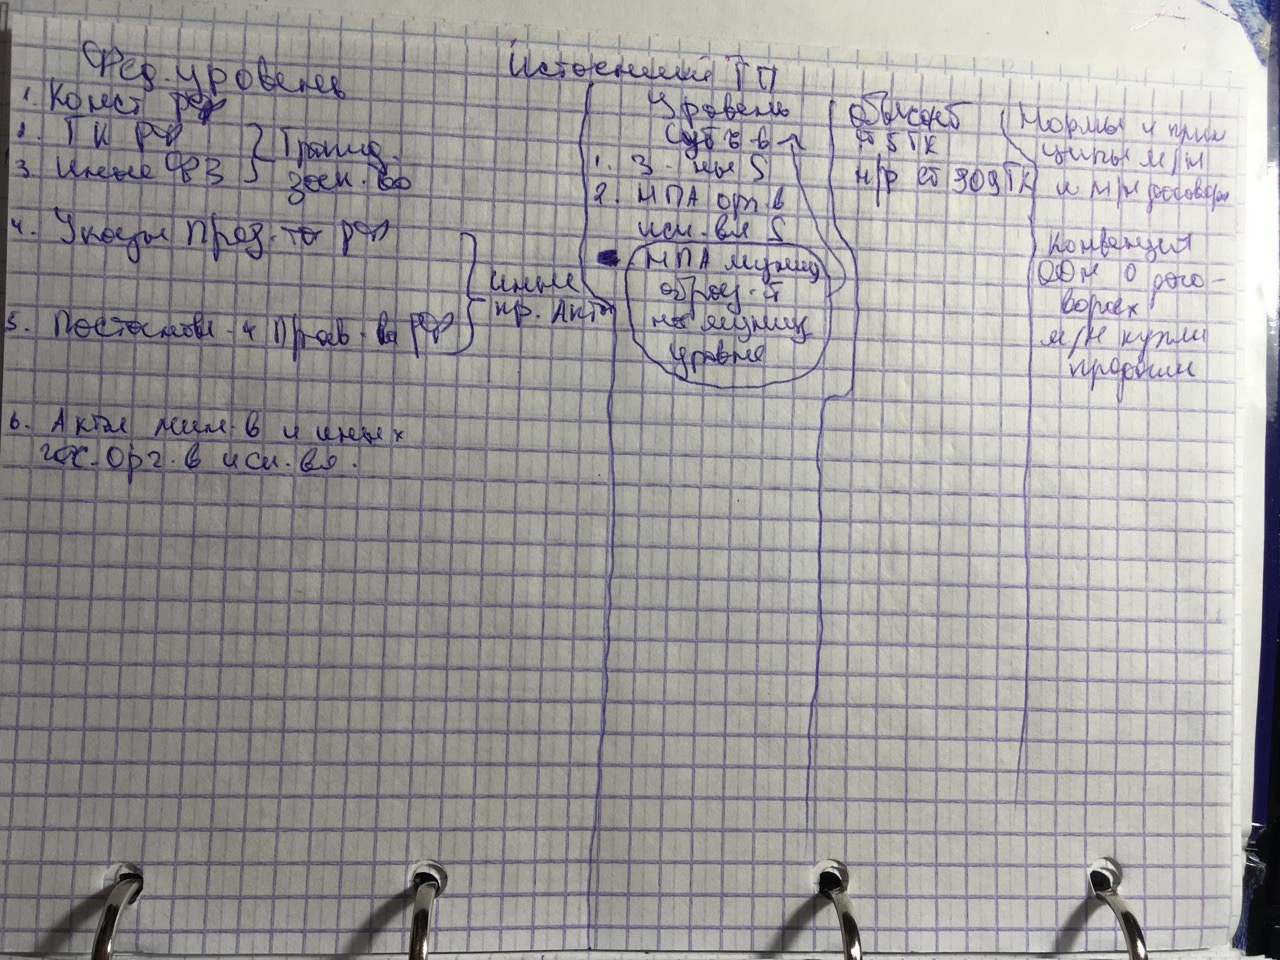 Источники ГП
Фед. уровень
1. Конст РФ
2. ГК РФ
3. Иные ФЗ
Гражд.
зак-во
4. Указы През-та РФ
5. Постановл-я Прав-ва РФ
иные
пр. Акты
6. Акты мин-в и иных
гос. орг-в исп. вл.
Уровень
Субъ-в
1. З-ны S
2. НПА орг-в
исп. вл S
НПА муниц
образ-й
на муниц
уровне
Обычаи
ст 5 ГК
н/р ст 309 ГК
Нормы и прин
ципы м/н
и м/н договоры
Конвенция
ООН о дого-
ворах
м/н купли
продажи